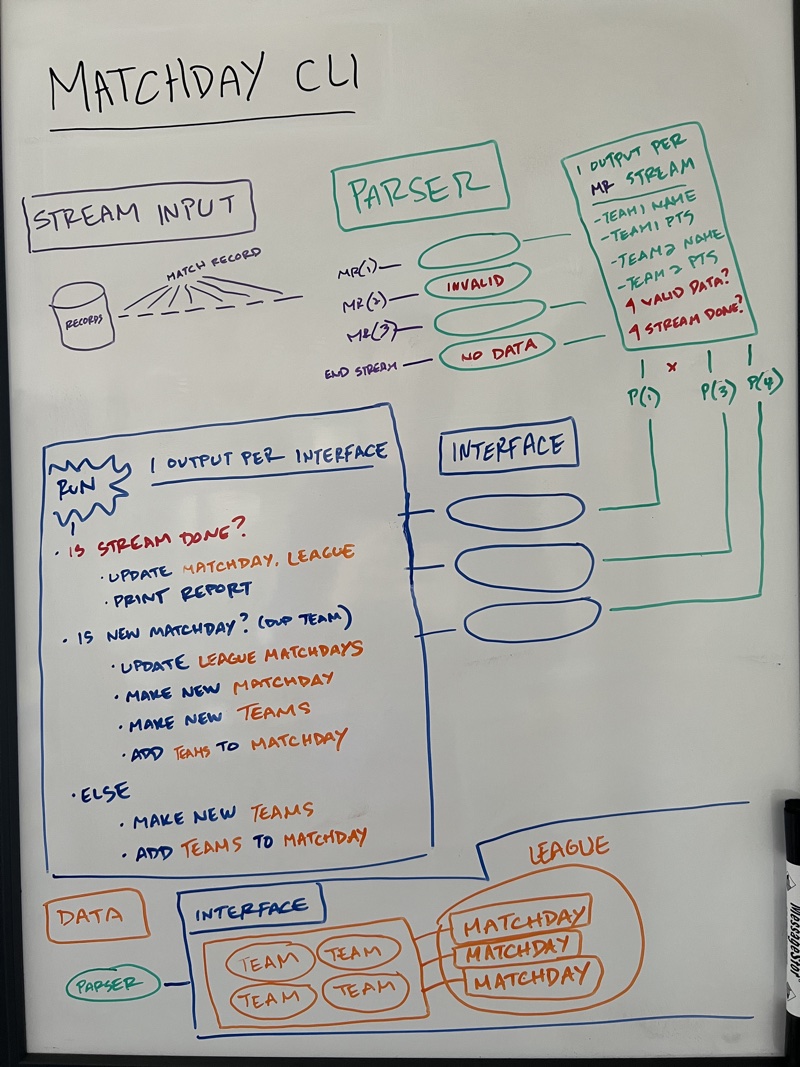 MATCHDAY CLI
STREAM INPUT
MATCH RECORD
RECORDS
PARSER
MR(1)
MR(2)
INVALID
MR(3)
END STREAM
NO DATA
1 OUTPUT PER
MR STREAM
-TEAM1 NAME
-TEAM1 PTS
-TEAM2 NAME
-TEAM2 PTS
VALID DATA?
STREAM DONE?
x
P(1)
P(3)
P(4)
INTERFACE
RUN
1 OUTPUT PER INTERFACE
· IS STREAM DONE?
· UPDATE MATCHDAY, LEAGUE
· PRINT REPORT
· IS NEW MATCHDAY? (DUP TEAM)
· UPDATE LEAGUE MATCHDAYS
· MAKE NEW MATCHDAY
· MAKE NEW TEAMS
· ADD TEAMS TO MATCHDAY
· ELSE
· MAKE NEW TEAMS
· ADD TEAMS TO MATCHDAY
DATA
PARSER
INTERFACE
TEAM TEAM
TEAM TEAM
LEAGUE
MATCHDAY
MATCHDAY
MATCHDAY